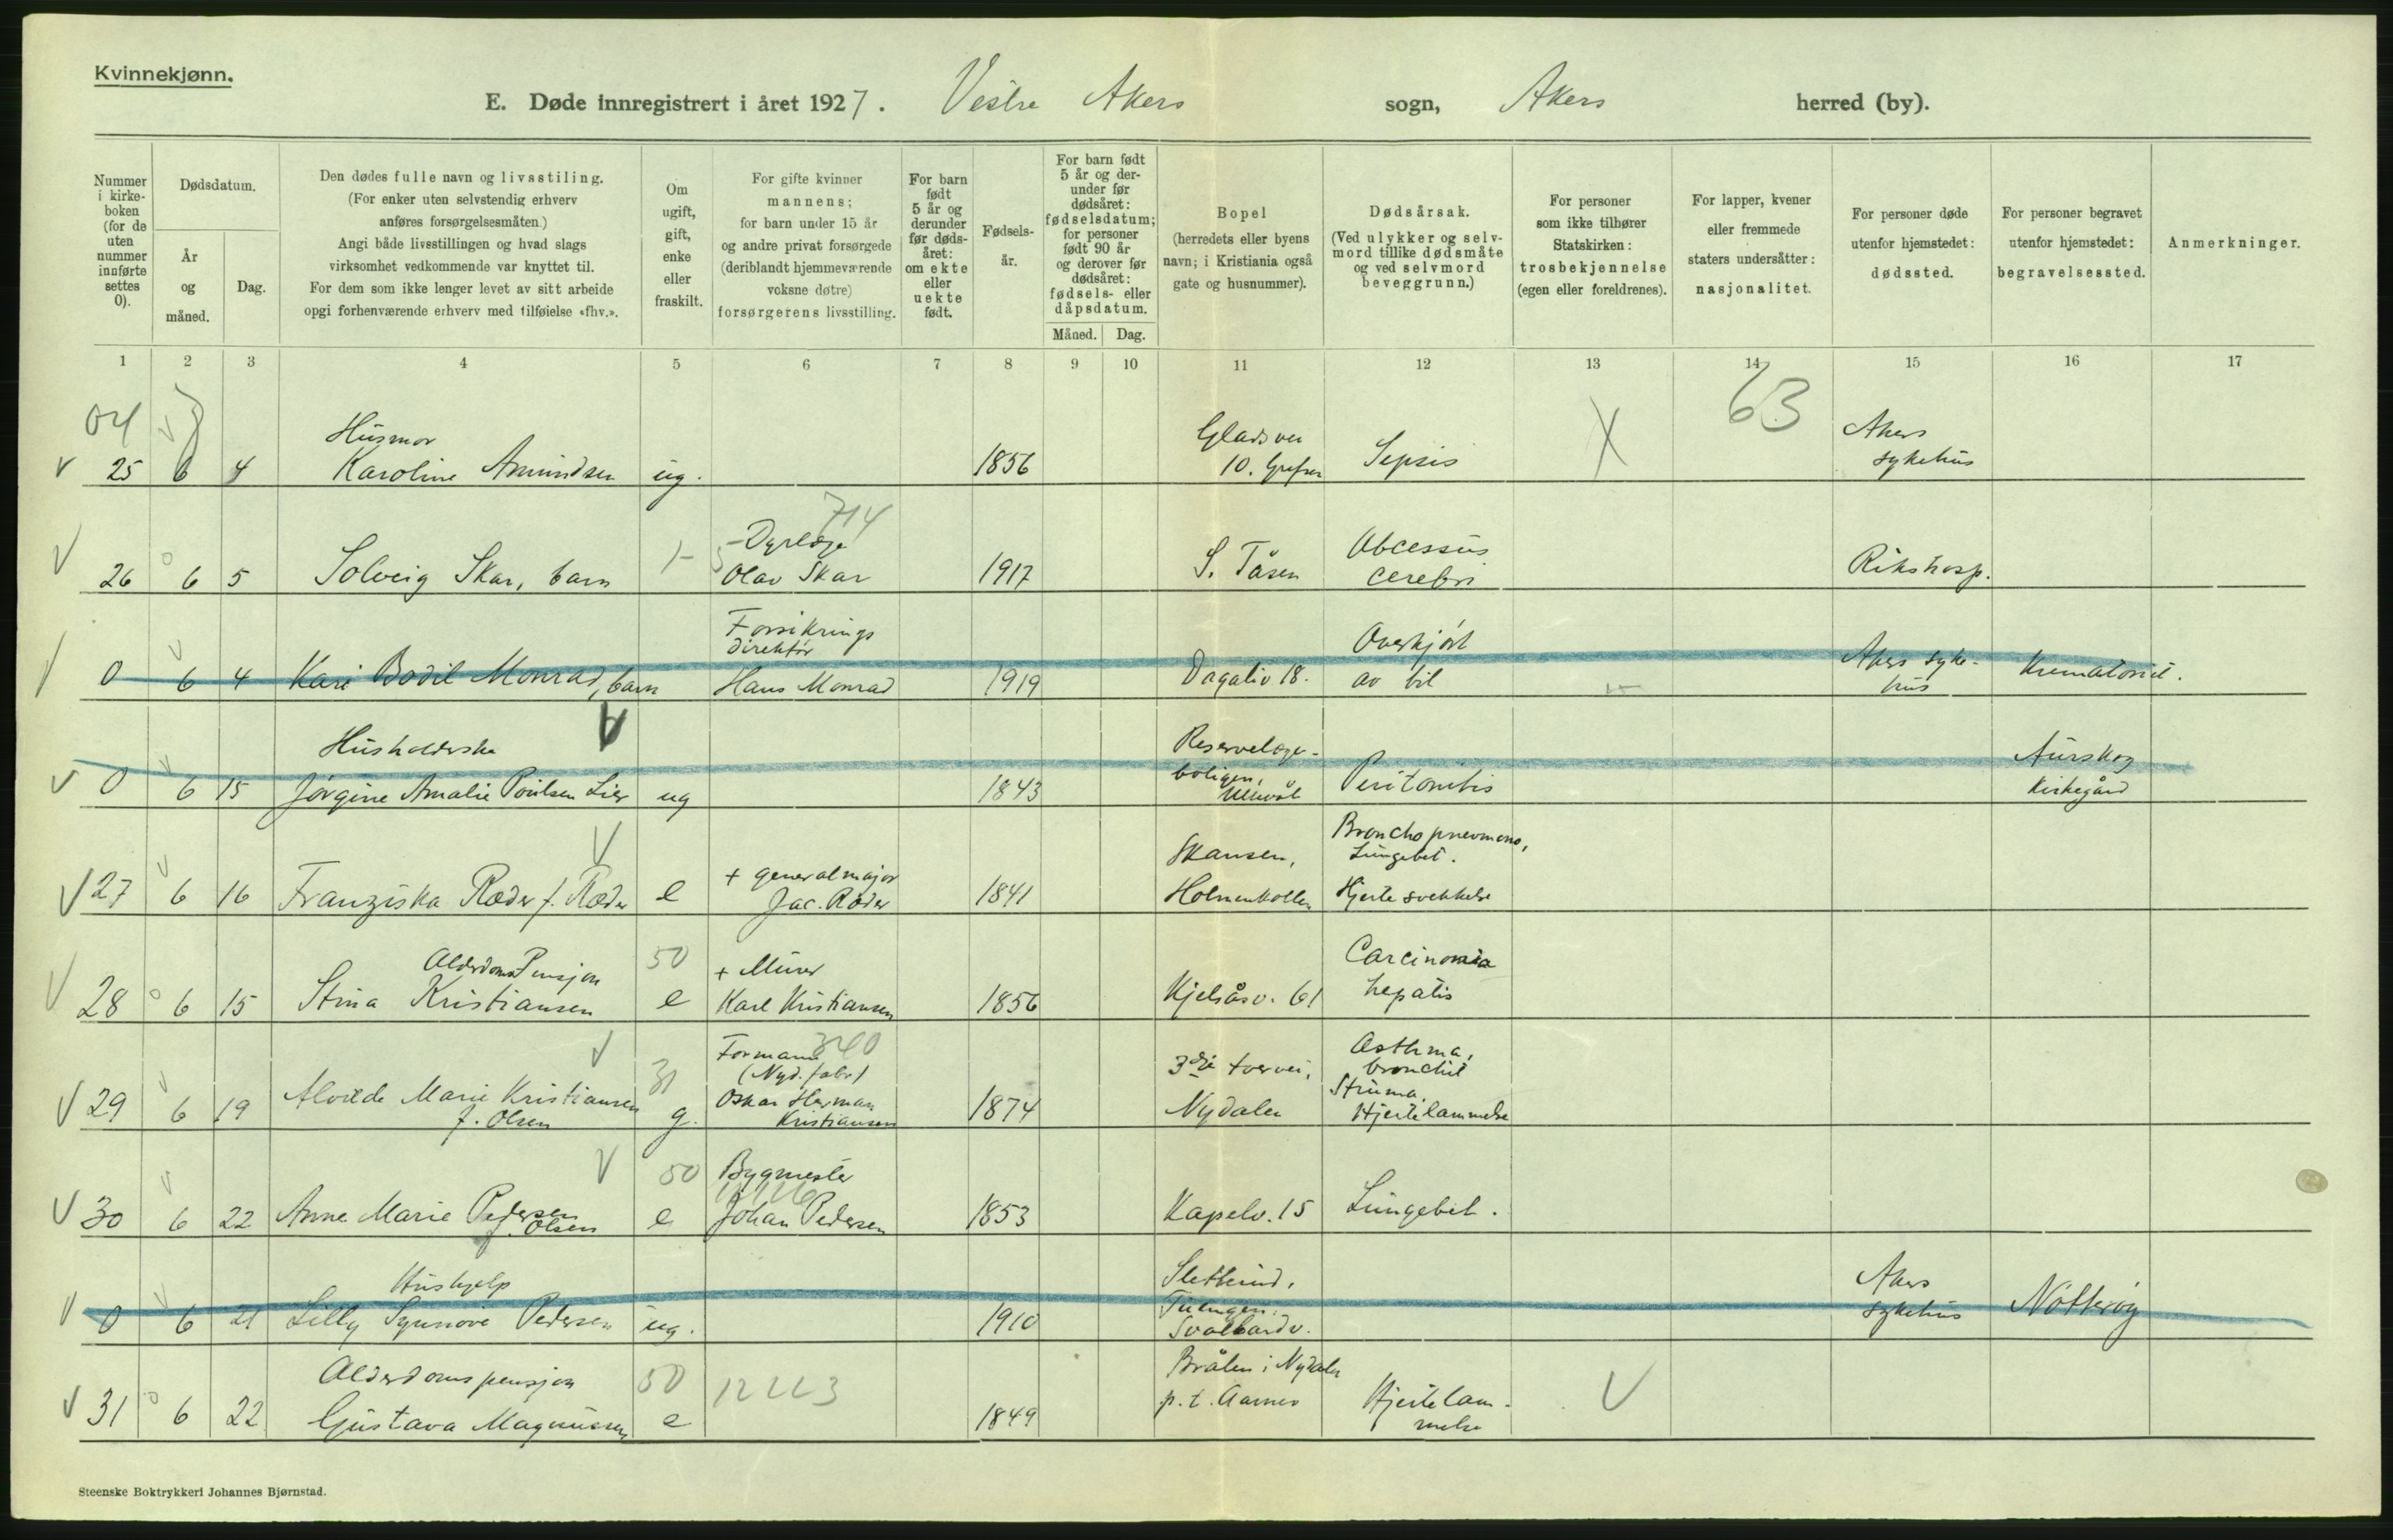 Kvinnekjønn.
E. Døde innregistrert i året 1927. Vestre Akers sogn, Akers herred (by).
Nummer i kirkeboken (for de uten nummer innførte settes 0).
Dødsdatum.
År og måned.
Dag.
Den dødes fulle navn og livsstiling.
(For enker uten selvstendig erhverv
anføres forsørgelsesmåten.)
Angi både livsstillingen og hvad slags
virksomhet vedkommende var knyttet til.
For dem som ikke lenger levet av sitt arbeide
opgi forhenværende erhverv med tilføielse «fhv.».
Om ugift, gift, enke eller fraskilt.
For gifte kvinner
mannens;
for barn under 15 år
og andre privat forsørgede
(deriblandt hjemmeværende
voksne døtre)
forsørgerens livsstilling.
For barn født 5 år og derunder før dødsåret: om ekte eller uekte født.
Fødselsår.
For barn født 5 år og derunder før dødsåret: fødselsdatum; for personer født 90 år og derover før dødsåret: fødsels- eller dåpsdatum.
Måned. Dag.
Bopel
(herredets eller byens
navn; i Kristiania også
gate og husnummer).
Dødsårsak.
(Ved ulykker og selvmord tillike dødsmåte
og ved selvmord
beveggrunn.)
For personer
som ikke tilhører
Statskirken:
trosbekjennelse
(egen eller foreldrenes).
For lapper, kvener
eller fremmede
staters undersåtter:
nasjonalitet.
For personer døde
utenfor hjemstedet:
dødssted.
For personer begravet
utenfor hjemstedet:
begravelsessted.
Anmerkninger.
1 2 3 4 5 6 7 8 9 10 11 12 13 14 15 16 17
04 63
Husmor
25 6 4 Karoline Amundsen ug. 1856 10. Grefsen Sepsis Akers sykehus
714
26 6 5 Solveig Skar, barn Dyrlæge Olav Skar 1917 S. Tåsen Abcessus cerebri Rikshosp.
0 6 4 Kari Bodil Monrad, barn Forsikrings direktør Hans Monrad 1919 Dagaliv 18. Overkjørt av bil Akers sykehus Krematoriet.
Husholderske
0 6 15 Jørgine Amalie Poulsen Lier ug 1843 Reservelægeboligen, Ullevål Peritonitis Aurskog Kirkegård
27 6 16 Franziska Ræder f. Ræder e + generalmajor Jac. Ræder 1841 Skansen, Holmenkollen Bronchopneumono, Lungebet. Hjertesvekkelse
Alderdoms Pensjon 50
28 6 15 Stina Kristiansen e + Murer Karl Kristiansen 1856 Kjelsåsv. 61 Carcinomia hepatis
31 340
29 6 19 Alvilde Marie Kristiansen f. Olsen g. Formann (Nyd. fabr) Oskar Herman Kristiansen 1874 3die tverrvei, Nydalen Asthma, bronchit Struma, Hjertelammelse
50
30 6 22 Anne Marie Pedersen f. Olsen e Bygmester Johan Pedersen 1853 Kapelv. 15 Lungebet.
Hushjelp
0 6 21 Lilly Synnøve Pedersen ug. 1910 Svalbardv. Akers sykehus Nøtterøy
Alderdomspensjon 50 12223
31 6 22 Gustava Magnussen e 1849 Bråten i Nydalen p.t. Aarnes Hjertelammelse
Steenske Boktrykkeri Johannes Bjørnstad.